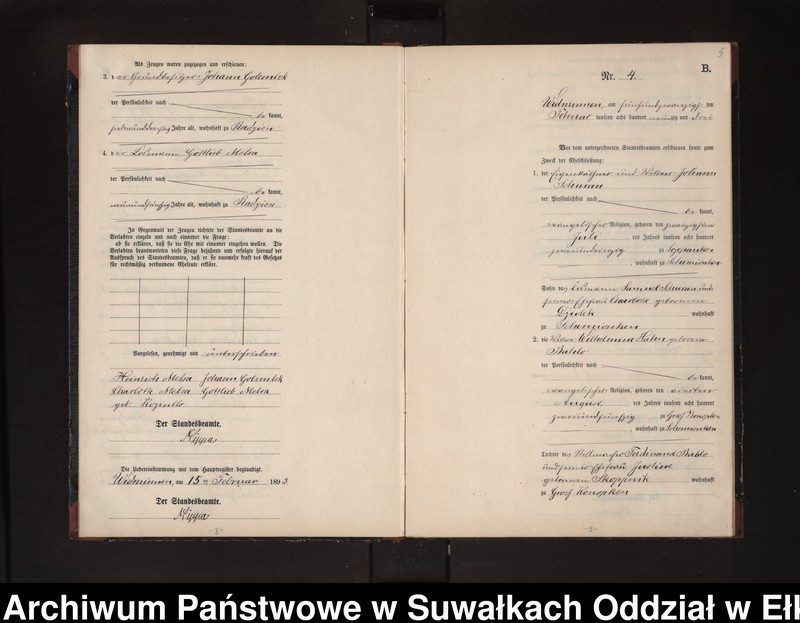 Als Zeugen waren zugezogen und erschienen:
3. der Grundbesitzer Johann Golembek
der Persönlichkeit nach
be kannt,
Jahre alt, wohnhaft zu Radzien
4. der Losmann Gottlieb Melsa
der Persönlichkeit nach
be kannt,
neunundfünfzig Jahre alt, wohnhaft zu Radzien
In Gegenwart der Zeugen richtete der Standesbeamte an die
Verlobten einzeln und nach einander die Frage:
ob sie erklären, daß sie die Ehe mit einander eingehen wollen. Die
Verlobten beantworteten diese Frage bejahend und erfolgte hierauf der
Ausspruch des Standesbeamten, daß er sie nunmehr kraft des Gesetzes
für rechtmäßig verbundene Eheleute erkläre.
Vorgelesen, genehmigt und unterschrieben
Heinrich Melsa Johann Golembek
Charlotte Melsa Gottlieb Melsa
geb.
Der Standesbeamte.
Nippa
Die Uebereinstimmung mit dem Hauptregister beglaubigt.
Widminnen, am 15ten Februar 1893.
Der Standesbeamte.
Nippa
- 8 -
5
B.
Nr. 4.
Widminnen, am fünfundzwanzigsten
Februar tausend acht hundert neunzig und drei
Vor dem unterzeichneten Standesbeamten erschienen heute zum
Zweck der Eheschließung:
1. der Eigenkäthner und Wittwer Johann
der Persönlichkeit nach
be kannt,
evangelischer Religion, geboren den zwanzigsten
Juli des Jahres tausend acht hundert
zu
, wohnhaft zu
Sohn des Losmann Samuel und
seiner Ehefrau Charlotte geborene
wohnhaft
zu
2. die Wittwe Wilhelmine Hahn geborene
Baldo
der Persönlichkeit nach
be kannt,
evangelischer Religion, geboren den vierten
August des Jahres tausend acht hundert
zweiundfünfzig zu Groß Konopken
, wohnhaft zu
Tochter des Stellmacher Ferdinand Baldo
und seiner Ehefrau Justine
geborenen Skoppnik wohnhaft
zu Groß Konopken
Archiwum Państwowe w Suwałkach Oddział w Ełk